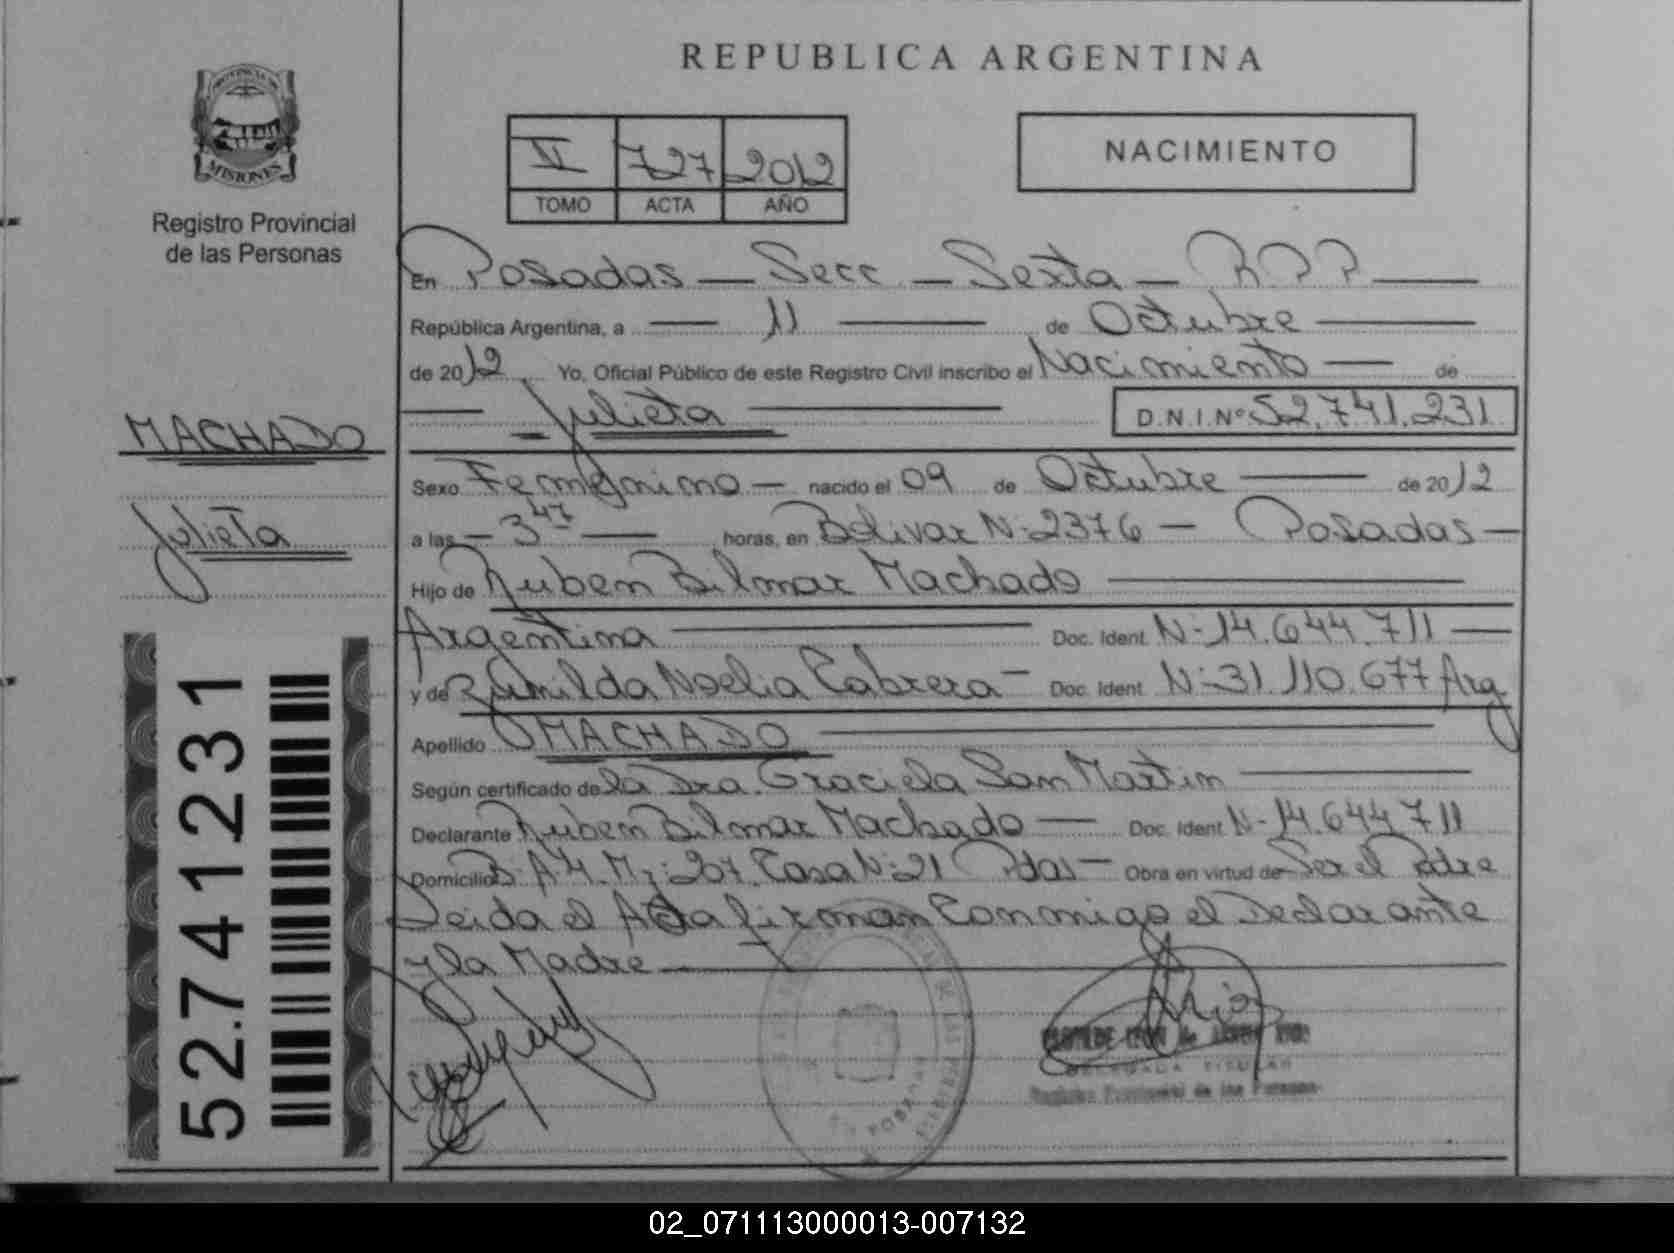 REPUBLICA ARGENTINA
PROVINCIA DE
MISIONES
Registro Provincial
de las Personas
VI 727 2012
TOMO ACTA AÑO
NACIMIENTO
En Posadas — Secc — Sexta — R P P —
República Argentina, a — 11 — de Octubre —
de 2012 Yo, Oficial Público de este Registro Civil inscribo el Nacimiento — de
— Julieta — D.N.I.Nº 52.741.231
MACHADO
Julieta
Sexo Femenino — nacido el 09 de Octubre — de 2012
a las — 3 47 — horas, en Bolivar N: 2376 — Posadas —
Hijo de Ruben Bilmar Machado —
Argentina — Doc. Ident. N- 14.644.711 —
y de Noelia Cabrera — Doc. Ident. N: 31.110.677 Arg
Apellido MACHADO —
Según certificado de la Dra. Graciela San Martin —
Declarante Ruben Bilmar Machado — Doc. Ident. N- 14.644.711
Domicilio B: A-4. Mz: 207. Casa N: 21 Pdas — Obra en virtud de Ser el Padre
Leida el Acta firman Conmigo el Declarante
y la Madre —
52.741.231
DELEGADA TITULAR
Registro Provincial de las Personas
02_071113000013-007132